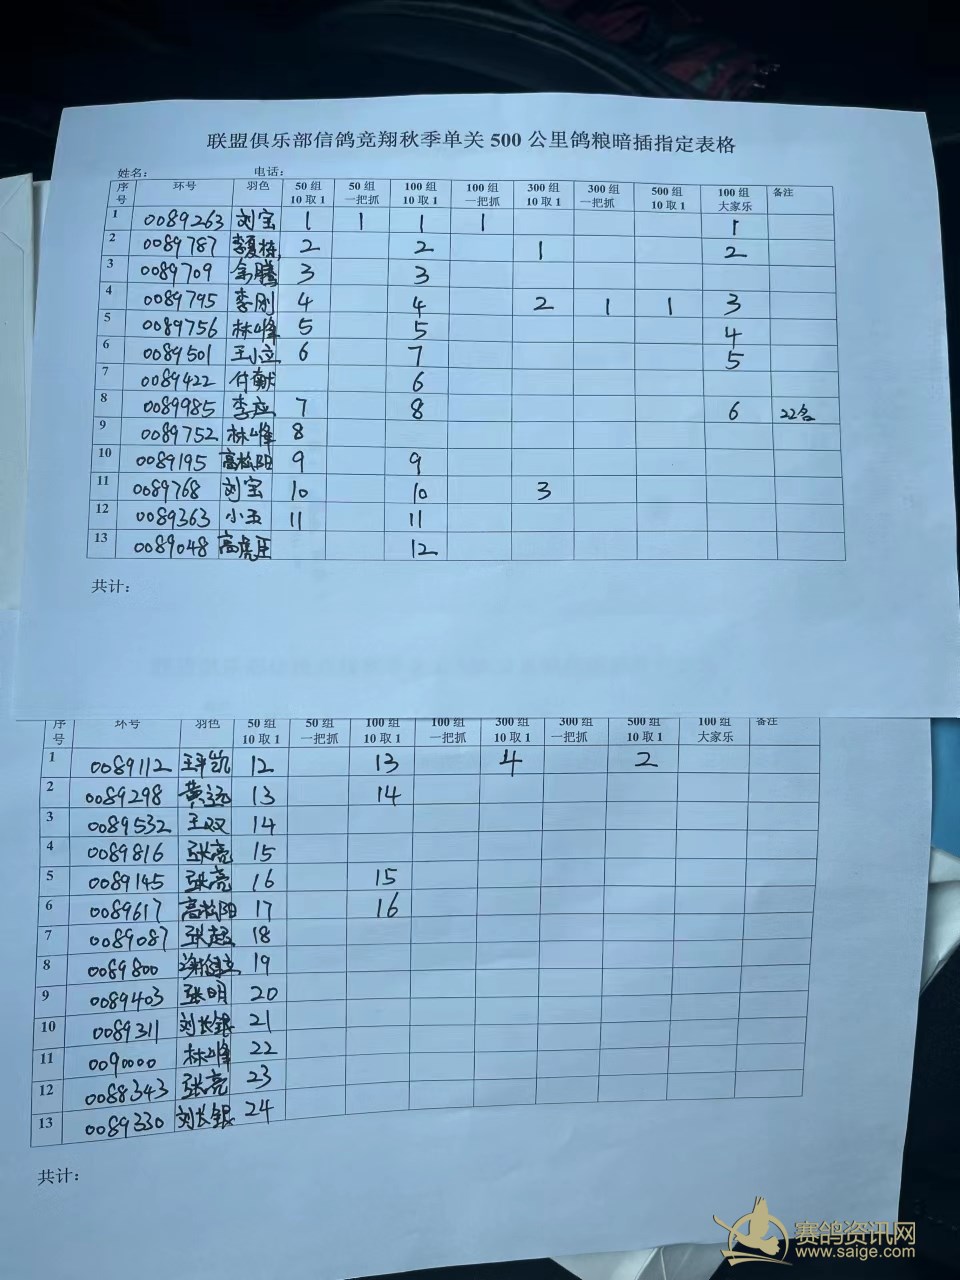 联盟俱乐部信鸽竞翔秋季单关 500 公里鸽粮暗插指定表格
姓名： 电话：
序号 环号 羽色 50 组 10 取 1 50 组 一把抓 100 组 10 取 1 100 组 一把抓 300 组 10 取 1 300 组 一把抓 500 组 10 取 1 100 组 大家乐 备注
1 0089263 刘宝 1 1 1 1 1
2 0089787 2 2 1 2
3 0089709 3 3
4 0089795 李刚 4 4 2 1 1 3
5 0089756 林峰 5 5 4
6 0089501 王小立 6 7 5
7 0089422 付献 6
8 0089985 李应 7 8 6 22名
9 0089752 林峰 8
10 0089195 高松阳 9 9
11 0089768 刘宝 10 10 3
12 0089363 小玉 11 11
13 0089048 高虎臣 12
共计：
序号 环号 羽色 50 组 10 取 1 50 组 一把抓 100 组 10 取 1 100 组 一把抓 300 组 10 取 1 300 组 一把抓 500 组 10 取 1 100 组 大家乐 备注
1 0089112 王平凯 12 13 4 2
2 0089298 黄远 13 14
3 0089532 王双 14
4 0089816 张亮 15
5 0089145 张亮 16 15
6 0089617 高松阳 17 16
7 0089087 张超 18
8 0089800 19
9 0089403 张明 20
10 0089311 刘长银 21
11 0090000 林峰 22
12 0088343 张亮 23
13 0089330 刘长银 24
共计：
赛鸽资讯网
www.saige.com